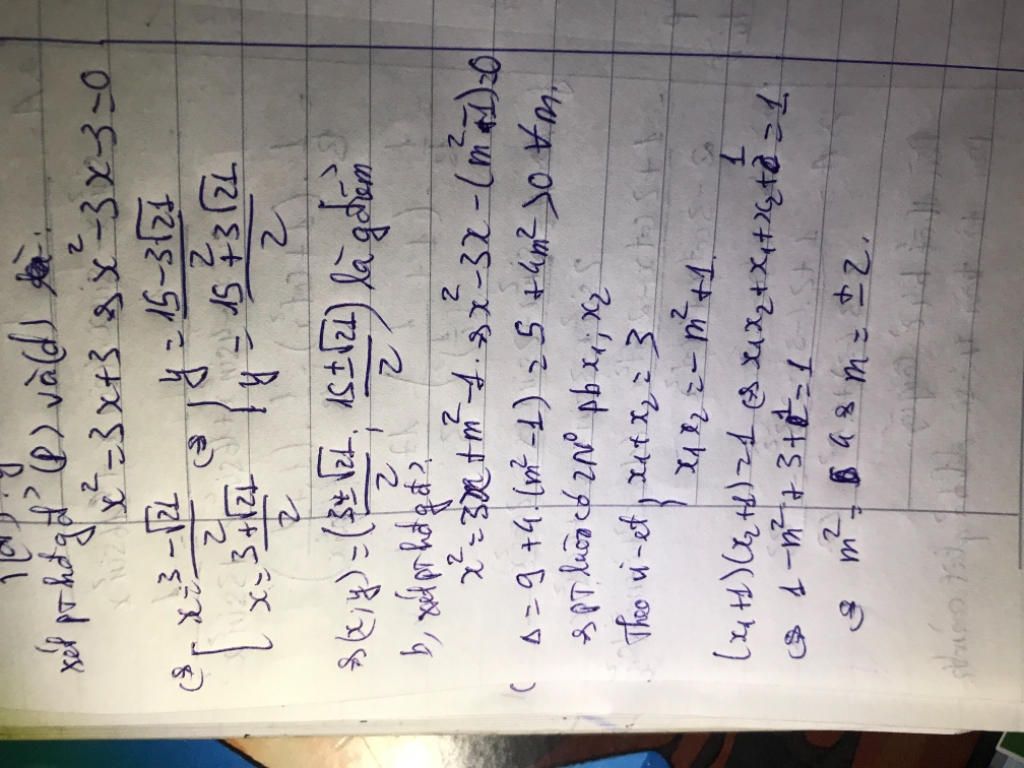 xét pt hđgđ² (P) và (d)
x² = 3x + 3 ⇔ x² - 3x - 3 = 0
⇔ [ x = 3 - √21 / 2 ⇔ { y = 15 - 3√21 / 2
x = 3 + √21 / 2 { y = 15 + 3√21 / 2
⇒ (x, y) = (3 ± √21 / 2 ; 15 ± √21 / 2) là gđiểm
b, xét pt hđgđ²
x² = 3x + m² - 1 ⇔ x² - 3x - (m² - 1) = 0
Δ = 9 + 4.(m² - 1) = 5 + 4m² > 0 ∀ m.
⇒ PT luôn có 2N⁰ pb x₁, x₂
Theo vi-et { x₁ + x₂ = 3
x₁x₂ = -m² + 1
(x₁ + 1)(x₂ + 1) = 1 ⇔ x₁x₂ + x₁ + x₂ + 1 = 1
⇔ 1 - m² + 3 + 1 = 1
⇔ m² = 4 ⇔ m = ± 2.